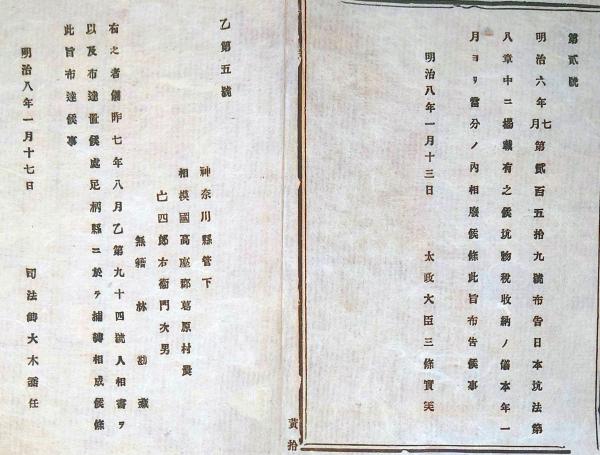 第貳號
明治六年七月第貳百五拾九號布告日本坑法第
八章中ニ揭載有之候坑物稅收納ノ儀本年一
月ヨリ當分ノ內相廢候條此旨布告候事
明治八年一月十三日　太政大臣三條實美
黃拾
乙第五號
神奈川縣管下
相模國高座郡葛原村農
亡四郎右衞門次男
無籍 林
右之者儀昨七年八月乙第九十四號人相書ヲ
以及布達置候處足柄縣ニ於テ捕縛相成候條
此旨布達候事
明治八年一月十七日　司法卿大木喬任